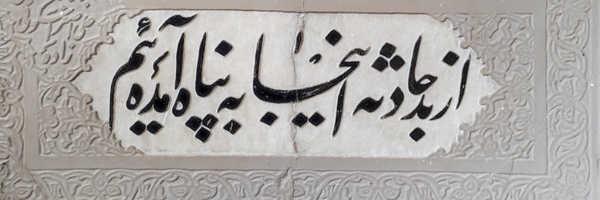 از بد حادثه اینجا به پناه آمده‌ایم